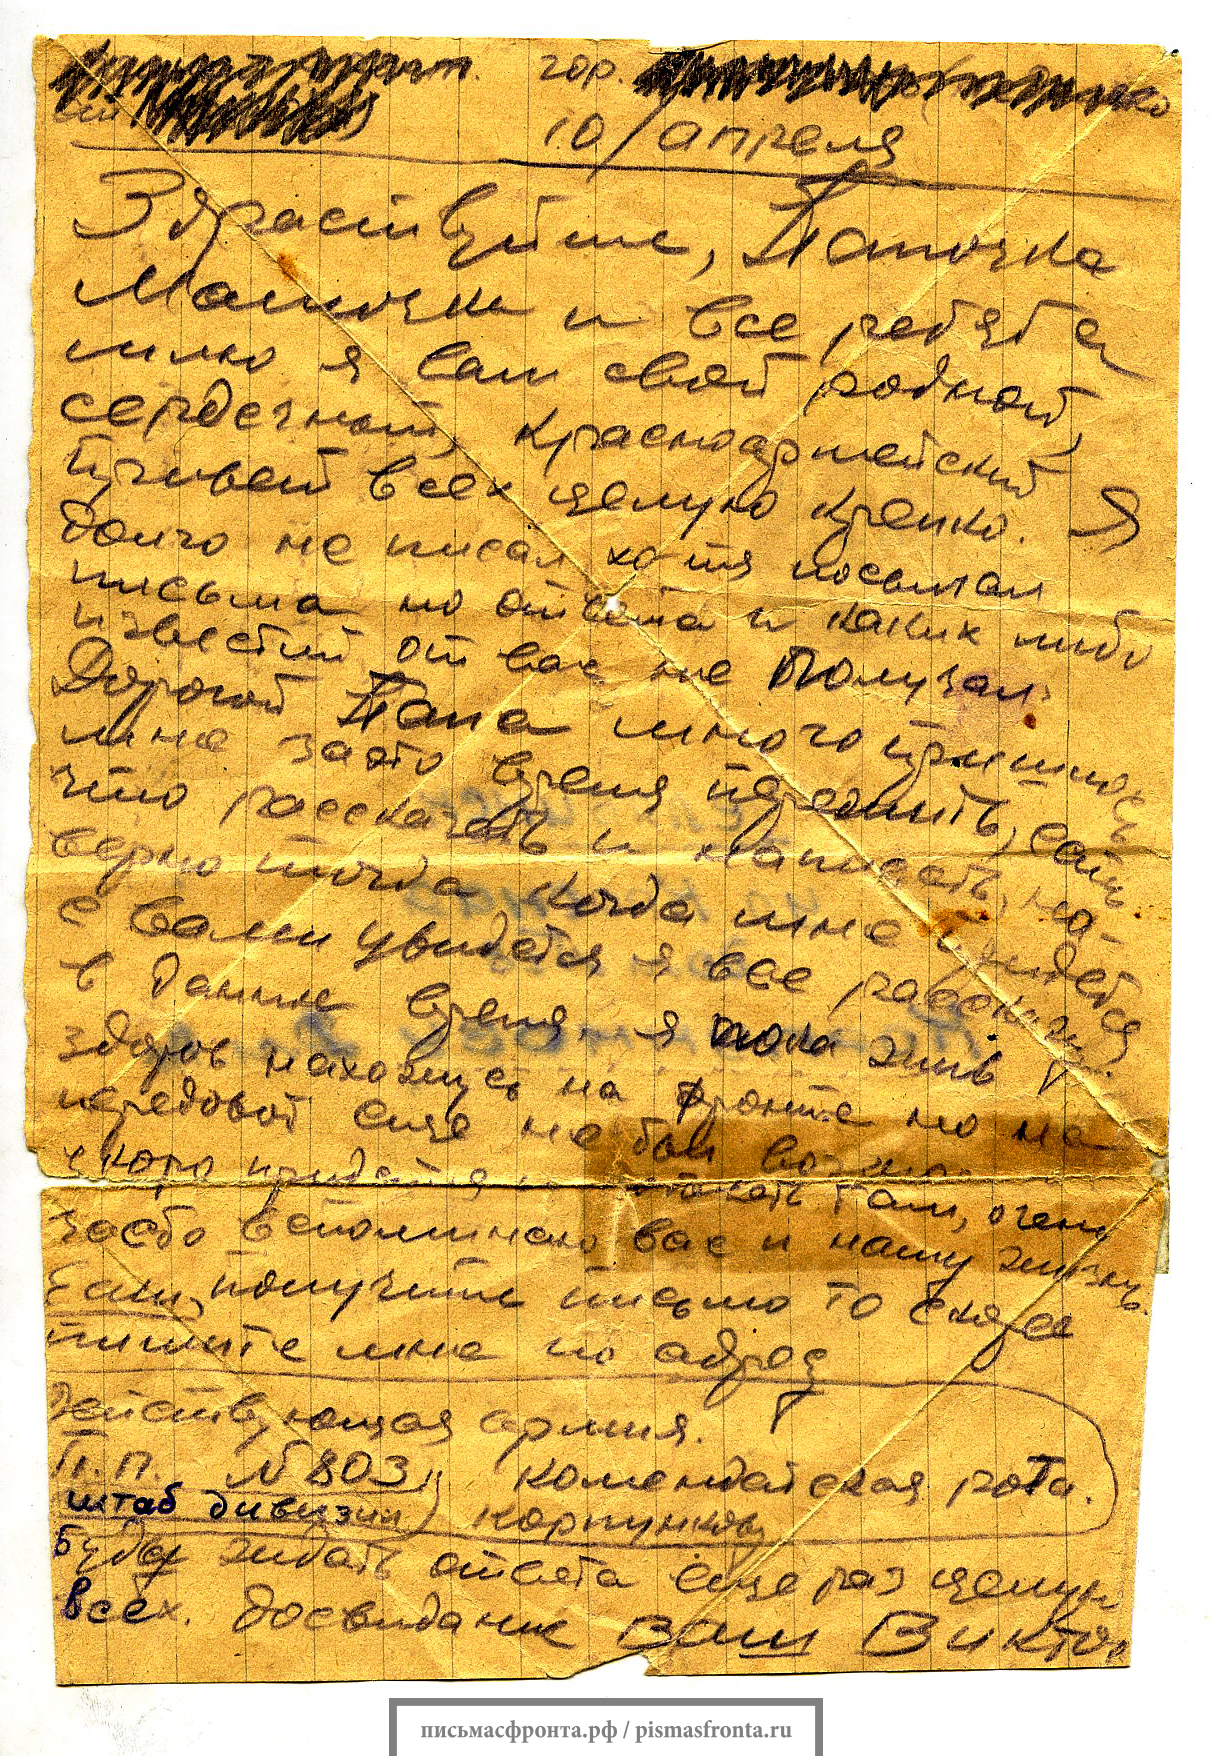 гор.
10/апреля
Здраствуйте, Папочка
Мамочка и все ребята
шлю я вам свой родной,
сердечный, красноармейский
привет всех целую крепко. Я
долго не писал хотя посылал
письма но ответа и каких либо
известий от вас не получал.
Дорогой Папа много пришлось
мне заэто время пережить, есть
что рассказать и написать, на-
верно тогда когда мне придется
с вами увидется я все раскажу.
в данне время я пока жив
здоров нахожусь на фронте но на
передовой еще не был
скоро придется там, очень
часто вспоминаю вас и нашу жизнь.
Если получите письмо то скорее
пишите мне по адресу
Действующая армия.
П.П. № 803 комендатская рота.
штаб дивизии) Корпункову
Буду ждать ответа еще раз целую
всех. Досвидание ваш Виктор
письмасфронта.рф / pismasfronta.ru